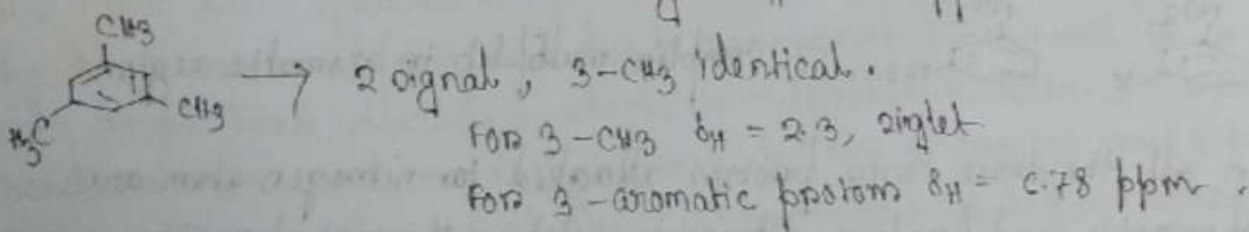 CH3
CH3
H3C
→ 2 signal, 3-CH3 identical.
For 3-CH3 δH = 2.3, singlet
For 3-aromatic protons δH = 6.78 ppm.